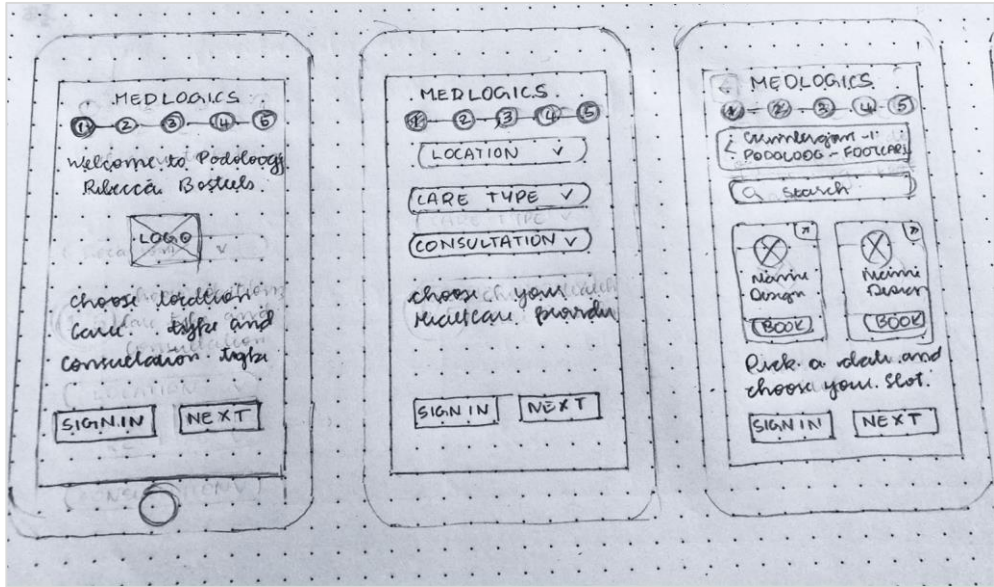 MEDLOGICS
1 2 3 4 5
Welcome to Podology
Rebecca Bosteels.
LOGO
choose location
care type and
consultation type
SIGN IN NEXT
MEDLOGICS
1 2 3 4 5
LOCATION
CARE TYPE
CONSULTATION
choose your
SIGN IN NEXT
MEDLOGICS
1 2 3 4 5
PODOLOOG - FOOTCARE
Search
Name Name
Design Design
BOOK BOOK
Pick a date and
choose your slot.
SIGN IN NEXT